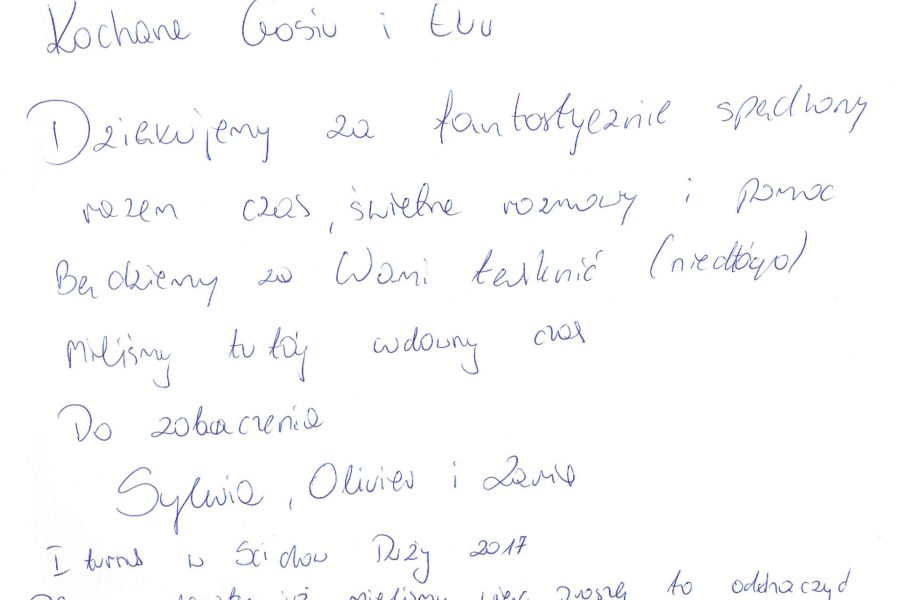 Kochane Gosiu i Ewu
Dziekujemy za fantastycznie spędzony
razem czas, świetne rozmowy i pomoc
Będziemy za Wami tesknić (niedłógo)
Mieliśmy tu tój cudowny czas
Do zobaczenia
Sylwia, Olivier i
I turnus w Duży 2017
mieliśmy więc proszę to odchaczyć